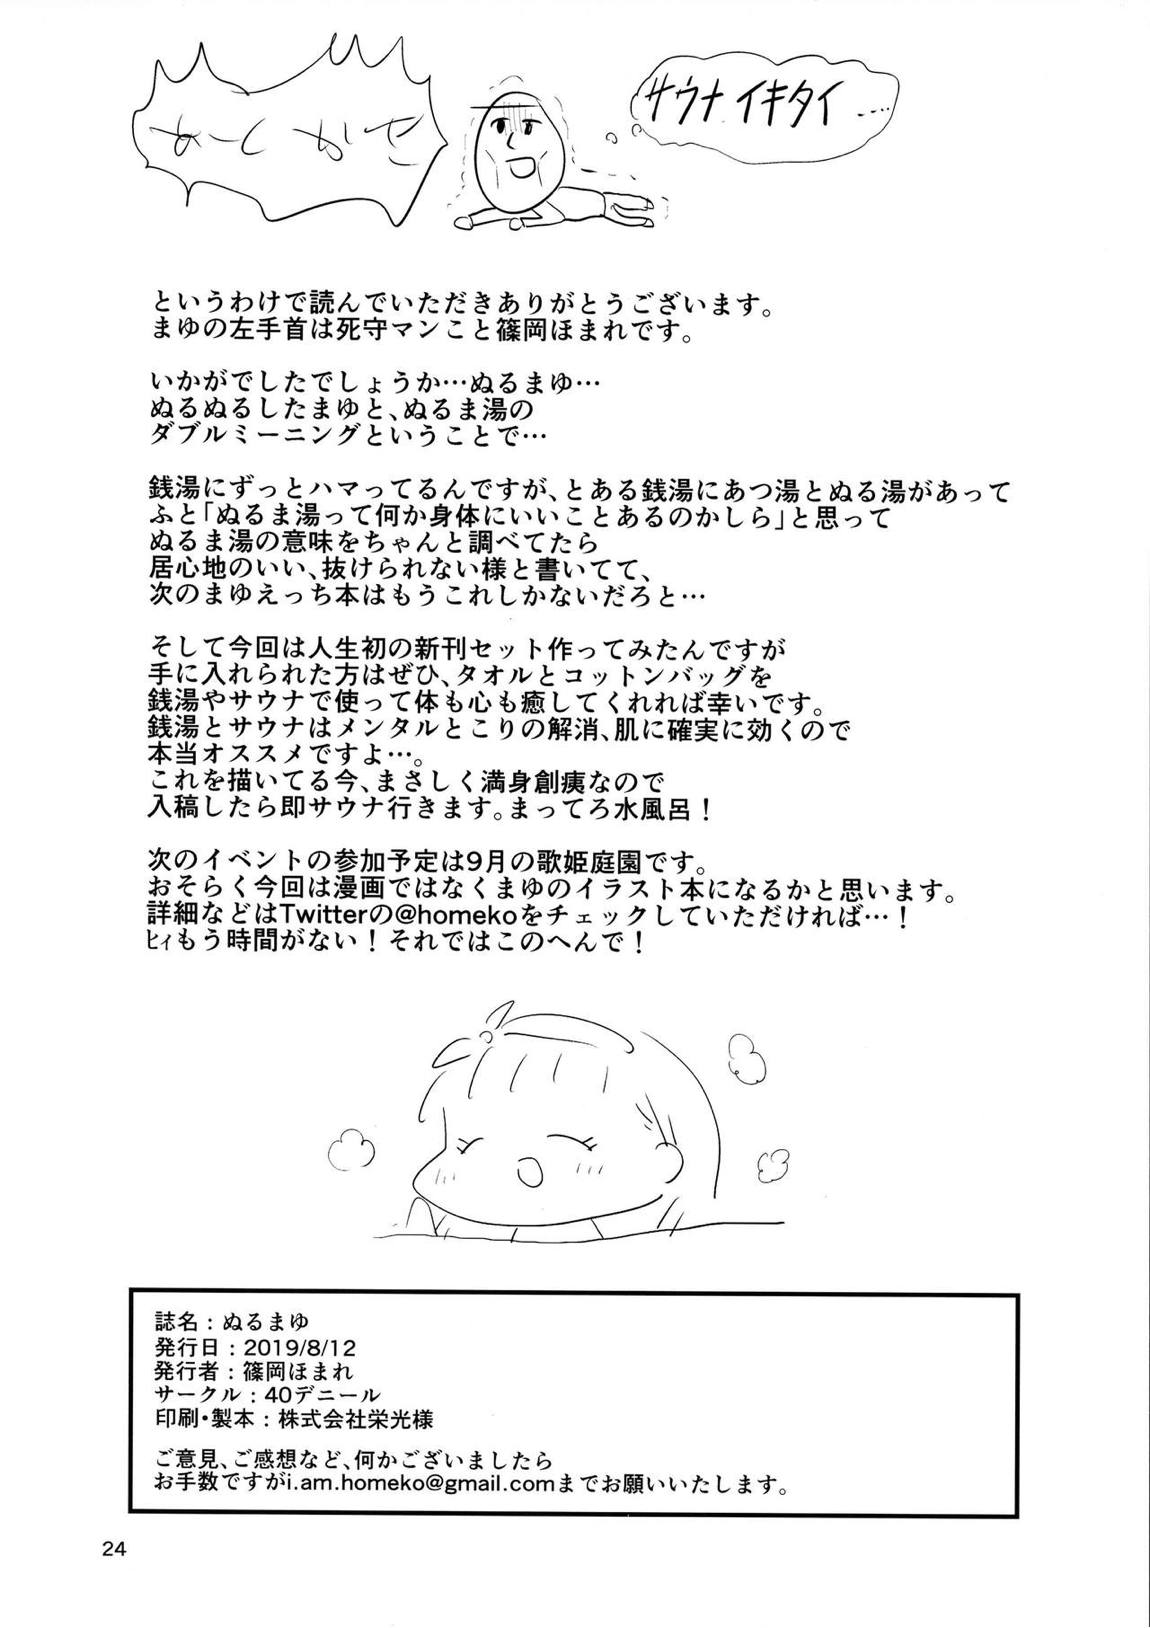 あーとがき
サウナイキタイ……
というわけで読んでいただきありがとうございます。
まゆの左手首は死守マンこと篠岡ほまれです。
いかがでしたでしょうか…ぬるまゆ…
ぬるぬるしたまゆと、ぬるま湯の
ダブルミーニングということで…
銭湯にずっとハマってるんですが、とある銭湯にあつ湯とぬる湯があって
ふと「ぬるま湯って何か身体にいいことあるのかしら」と思って
ぬるま湯の意味をちゃんと調べてたら
居心地のいい、抜けられない様と書いてて、
次のまゆえっち本はもうこれしかないだろと…
そして今回は人生初の新刊セット作ってみたんですが
手に入れられた方はぜひ、タオルとコットンバッグを
銭湯やサウナで使って体も心も癒してくれれば幸いです。
銭湯とサウナはメンタルとこりの解消、肌に確実に効くので
本当オススメですよ…。
これを描いてる今、まさしく満身創痍なので
入稿したら即サウナ行きます。まってろ水風呂！
次のイベントの参加予定は9月の歌姫庭園です。
おそらく今回は漫画ではなくまゆのイラスト本になるかと思います。
詳細などはTwitterの@homekoをチェックしていただければ…！
ﾋｨもう時間がない！それではこのへんで！
誌名：ぬるまゆ
発行日：2019/8/12
発行者：篠岡ほまれ
サークル：40デニール
印刷・製本：株式会社栄光様
ご意見、ご感想など、何かございましたら
お手数ですがi.am.homeko@gmail.comまでお願いいたします。
24